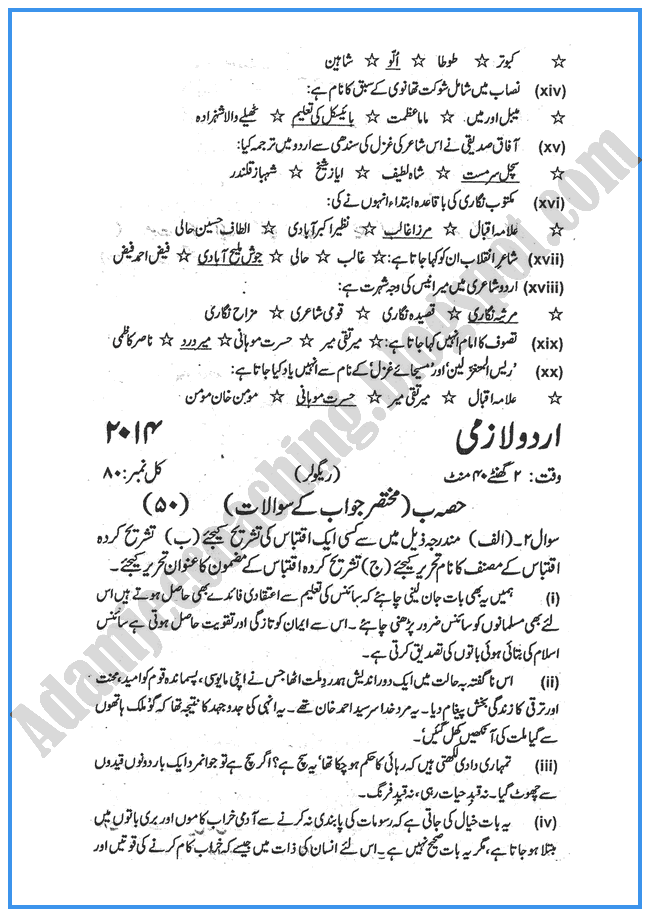 ☆ کبوتر ☆ طوطا ☆ اُلّو ☆ شاہین
(xiv) نصاب میں شامل شوکت تھانوی کے سبق کا نام ہے:
☆ میبل اور میں ☆ ماما عظمت ☆ بائیسکل کی تعلیم ☆ ٹھیلے والا شہزادہ
(xv) آفاق صدیقی نے اس شاعر کی غزل کی سندھی سے اردو میں ترجمہ کیا:
☆ سچل سرمست ☆ شاہ لطیف ☆ ایاز شیخ ☆ شہباز قلندر
(xvi) مکتوب نگاری کی باقاعدہ ابتداء انہوں نے کی:
☆ علامہ اقبال ☆ مرزا غالب ☆ نظیر اکبر آبادی ☆ الطاف حسین حالی
(xvii) شاعرِ انقلاب ان کو کہا جاتا ہے: ☆ غالب ☆ حالی ☆ جوش ملیح آبادی ☆ فیض احمد فیض
(xviii) اردو شاعری میں میر انیس کی وجہ شہرت ہے:
☆ مرثیہ نگاری ☆ قصیدہ نگاری ☆ قومی شاعری ☆ مزاح نگاری
(xix) تصوف کا امام انہیں کہا جاتا ہے: ☆ میر تقی میر ☆ حسرت موہانی ☆ میر درد ☆ ناصر کاظمی
(xx) 'رئیس المتغزلین' اور 'مسیحائے غزل' کے نام سے انہیں یاد کیا جاتا ہے:
☆ علامہ اقبال ☆ میر تقی میر ☆ حسرت موہانی ☆ مومن خان مومن
اردو لازمی ۲۰۱۴
وقت: ۲ گھنٹے ۴۰ منٹ (ریگولر) کل نمبر: ۸۰
حصہ ب (مختصر جواب کے سوالات) (۵۰)
سوال ۲۔ (الف) مندرجہ ذیل میں سے کسی ایک اقتباس کی تشریح کیجئے (ب) تشریح کردہ
اقتباس کے مصنف کا نام تحریر کیجئے (ج) تشریح کردہ اقتباس کے مضمون کا عنوان تحریر کیجئے۔
(i) ہمیں یہ بھی بات جان لینی چاہئے کہ سائنس کی تعلیم سے اعتقادی فائدے بھی حاصل ہوتے ہیں اس
لئے بھی مسلمانوں کو سائنس ضرور پڑھنی چاہئے۔ اس سے ایمان کو تازگی اور تقویت حاصل ہوتی ہے سائنس
اسلام کی بتائی ہوئی باتوں کی تصدیق کرتی ہے۔
(ii) اس ناگفتہ بہ حالت میں ایک دور اندیش ہمدردِ ملت اٹھا جس نے اپنی مایوسی، پسماندہ قوم کو امید، محنت
اور ترقی کا زندگی بخش پیغام دیا۔ یہ مردِ خدا سرسید احمد خان تھے۔ یہ انہی کی جدوجہد کا نتیجہ تھا کہ گو ملک ہاتھوں
سے گیا ملت کی آنکھیں کھل گئیں'۔
(iii) تمہاری دادی لکھتی ہیں کہ رہائی کا حکم ہو چکا تھا' یہ سچ ہے؟ اگر سچ ہے تو جوانمرد ایک بار دونوں قیدوں
سے چھوٹ گیا۔ نہ قیدِ حیات رہی، نہ قیدِ فرنگ۔
(iv) یہ بات خیال کی جاتی ہے کہ رسومات کی پابندی نہ کرنے سے آدمی خراب کاموں اور بری باتوں میں
مبتلا ہو جاتا ہے، مگر یہ بات صحیح نہیں ہے۔ اس لئے انسان کی ذات میں جیسے کہ خراب کام کرنے کی قوتیں اور
Adamjeecoaching.blogspot.com